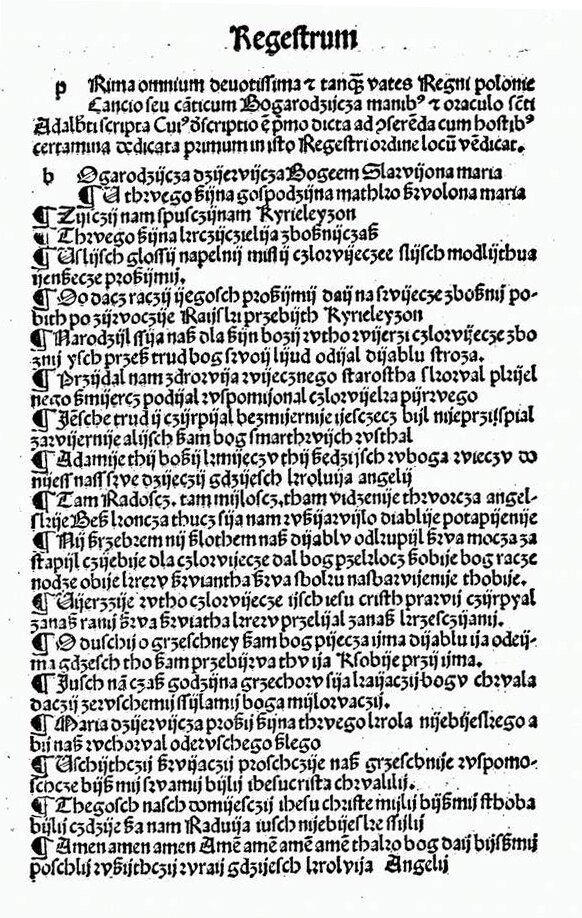 Regestrum
p Rima omnium deuotissima ⁊ tanqȝ vates Regni polonie
Cancio seu cāticum Bogarodzijcza manib⁹ ⁊ oraculo scti
Adalbti scripta Cui⁹ dscriptio ē pmo dicta ad ↄserēda cum hostib⁹
certamina dedicata primum in isto Regestri ordine locū vēdicat.
b Ogarodzijcza dzijervijcza Bogeem Slarvijona maria
¶ U thrvego ßijna gospodzijna mathlro ßrvolona maria
¶ Zijiczij nam spusczijnam Kyrieleyzon
¶ Thrvego ßijna lrrczijczielija zboßnijczaß
¶ Uslijsch glossij napelnij mislij czlorvijeczee slijsch modlijthua
ijenßecze proßijmij.
¶ Oo dacz raczij ijegosch proßijmij daij na srvijecze zboßnij po-
bith po zijrvoczije Raijslri przebijth Kyrieleyzon
¶ Narodzijl ssija naß dla ßijn bozij rvtho rvijerzi czlorvijecze zbo
znij ysch przeß trud bog srvoij lijud odijal dijablu stroza.
¶ Przijdal nam zdrorvija rvijecznego starostha slrorval plrijel
nego ßmijercz podijal rvspomijonal czlorvijelra pijrvego
¶ Jēsche trud ij czijrpijal bezmijernije ijesczecz bijl nijeprzijspial
zarvijernije alijsch ßam bog smarthrvijch rvsthal
¶ Adamije thij boßij lrmijeczv thij ßedzijsch rvboga rvieczv do
nijess nass srve dzijeczij gdzijesch lrrolvija angelij
¶ Tam Radoscz. tam mijloscz. tham vidzenije thrvorcza angel-
slrije Beß lroncza thucz sija nam rvßijarvijlo diablije potapijenije
¶ Nij ßrzebrem nij ßlothem naß dijablv odlrupijl ßrva mocza za
stapijl czijebije dla czlorvijecze dal bog przelrlocz ßobije bog racze
nodze obije lrrerv ßrviantha ßrva sbolru nasbarvijenije thobije.
¶ Uijerzzije rvtho czlorvijecze ijsch iesu cristh prarvij czijrpyal
zanaß ranij ßrva ßrviatha lrrerv przelijal zanaß lrrzesczijanij.
¶ O duschij o grzeschney ßam bog pijecza ijma dijablu ija odeij-
ma gdzesch tho ßam przebijrva thv ija Kßobije przij ijma.
¶ Jusch nā czaß godzijna grzechorv sija lraijaczij bogv chrvala
daczij zervschemij ssijlamij boga mijlorvaczij.
¶ Maria dzijervijcza proßij ßijna thrvego lrrola nijebijeslrego a
bij naß rvchorval odervschego ßlego
¶ Uschijthczij ßrvijaczij proschczije naß grzeschnije rvspomo-
schcze bijß mij srvamij bijlij ihesucrista chrvalilij.
¶ Thegosch nasch domijesczij ihesu christe mijlij bijßmij sthoba
bijlij czdzije ßa nam Raduija iusch nijebijeslre ssijlij
¶ Amen amen amen Amē amē amē amē thalro bog daij bijsßmij
poschlij rvßijthczij rvraij gdzijesch lrrolvija Angelij